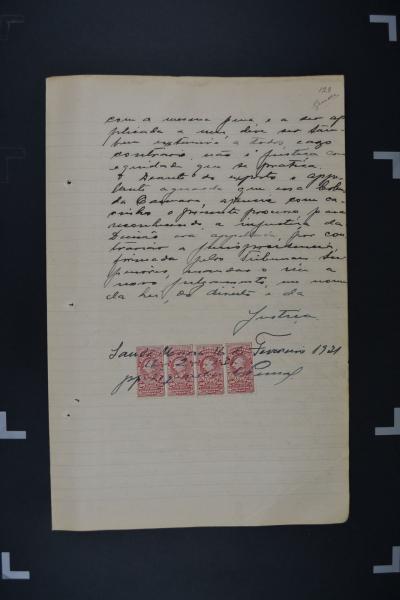 123
com a mesma pena e a ser ap
plicada a meu, deve ser tam
bem extensiva a todos, caso
contrario, não é justiça com
equidade que se pratica.
E Deante do exposto o appel
lante aguarda que essa
da Camara, aprecie com ca
rinho o presente processo para
reconhecendo a injustiça da
Decisão ora appellada, por con
traria a jurisprudencia,
firmada pelos tribunaes su
periores, mandar o réu a
novo julgamento, em nome
da Lei, do direito e da
Justiça.
Santa de Fevereiro 1921
pp